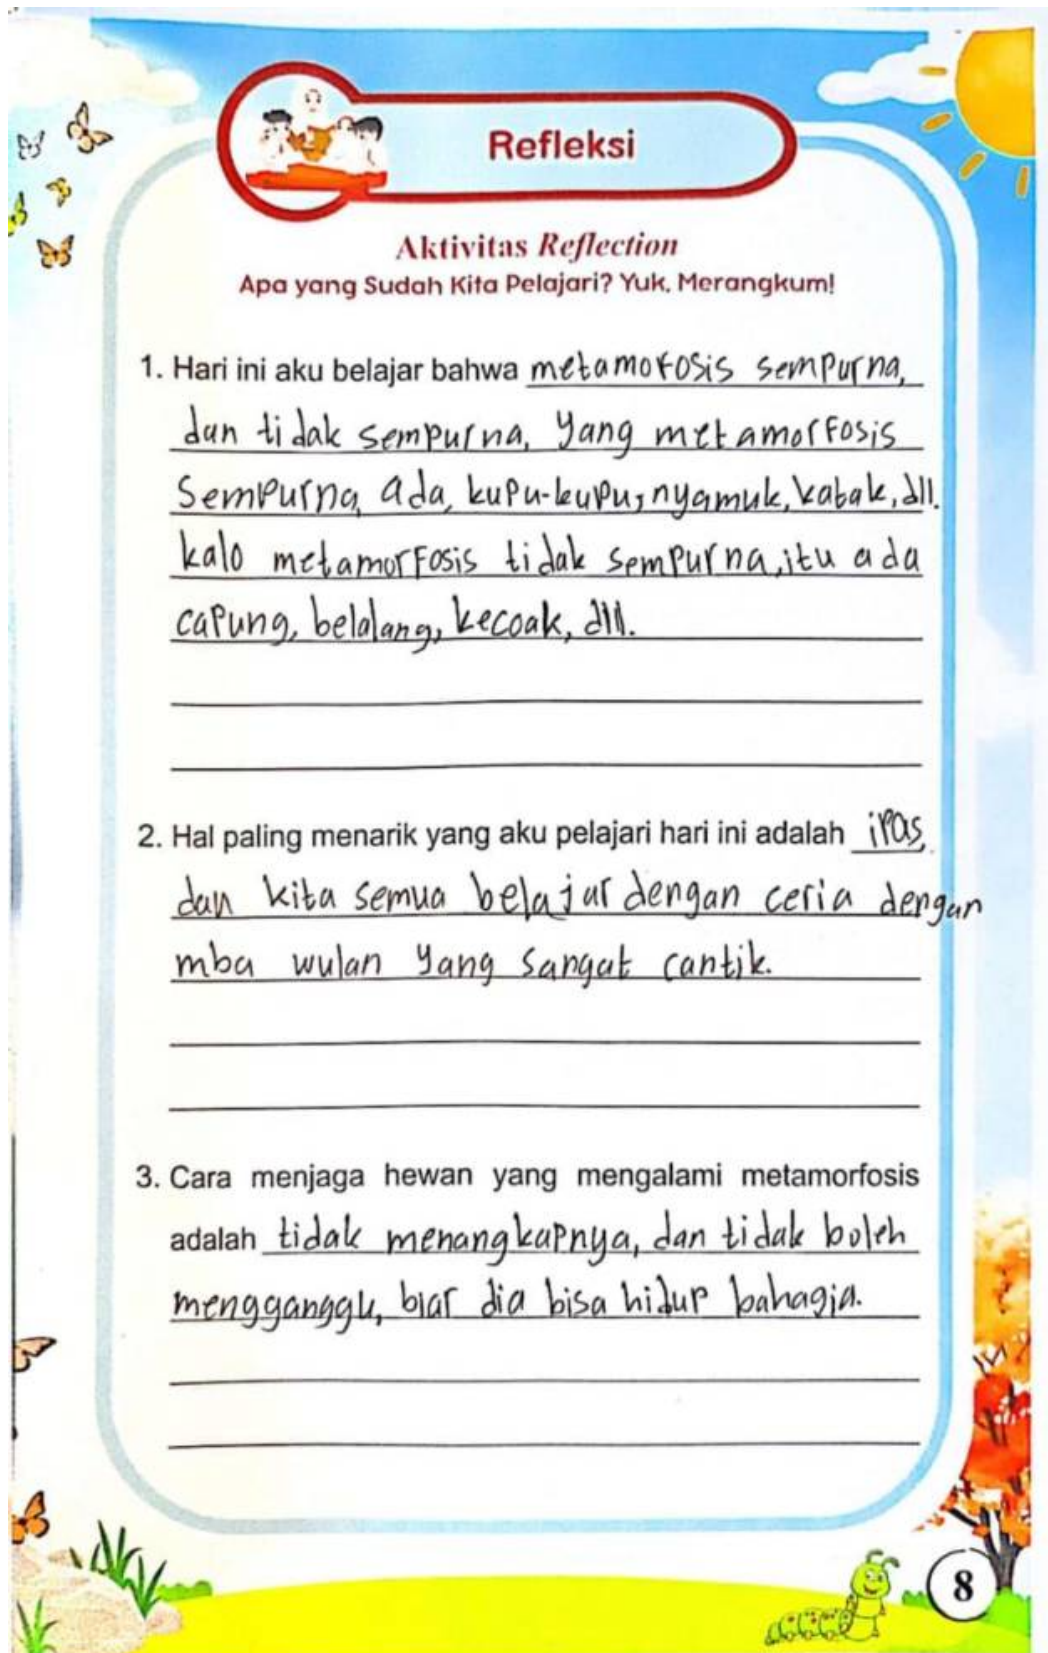 Refleksi
Aktivitas Reflection
Apa yang Sudah Kita Pelajari? Yuk, Merangkum!
1. Hari ini aku belajar bahwa metamofosis sempurna,
dan tidak sempurna, yang metamorfosis
Sempurna ada, kupu-kupu, nyamuk, katak, dll.
kalo metamorfosis tidak sempurna, itu ada
capung, belalang, kecoak, dll.
2. Hal paling menarik yang aku pelajari hari ini adalah ipas,
dan kita semua belajar dengan ceria dengan
mba wulan yang sangat cantik.
3. Cara menjaga hewan yang mengalami metamorfosis
adalah tidak menangkapnya, dan tidak boleh
mengganggu, biar dia bisa hidup bahagia.
8